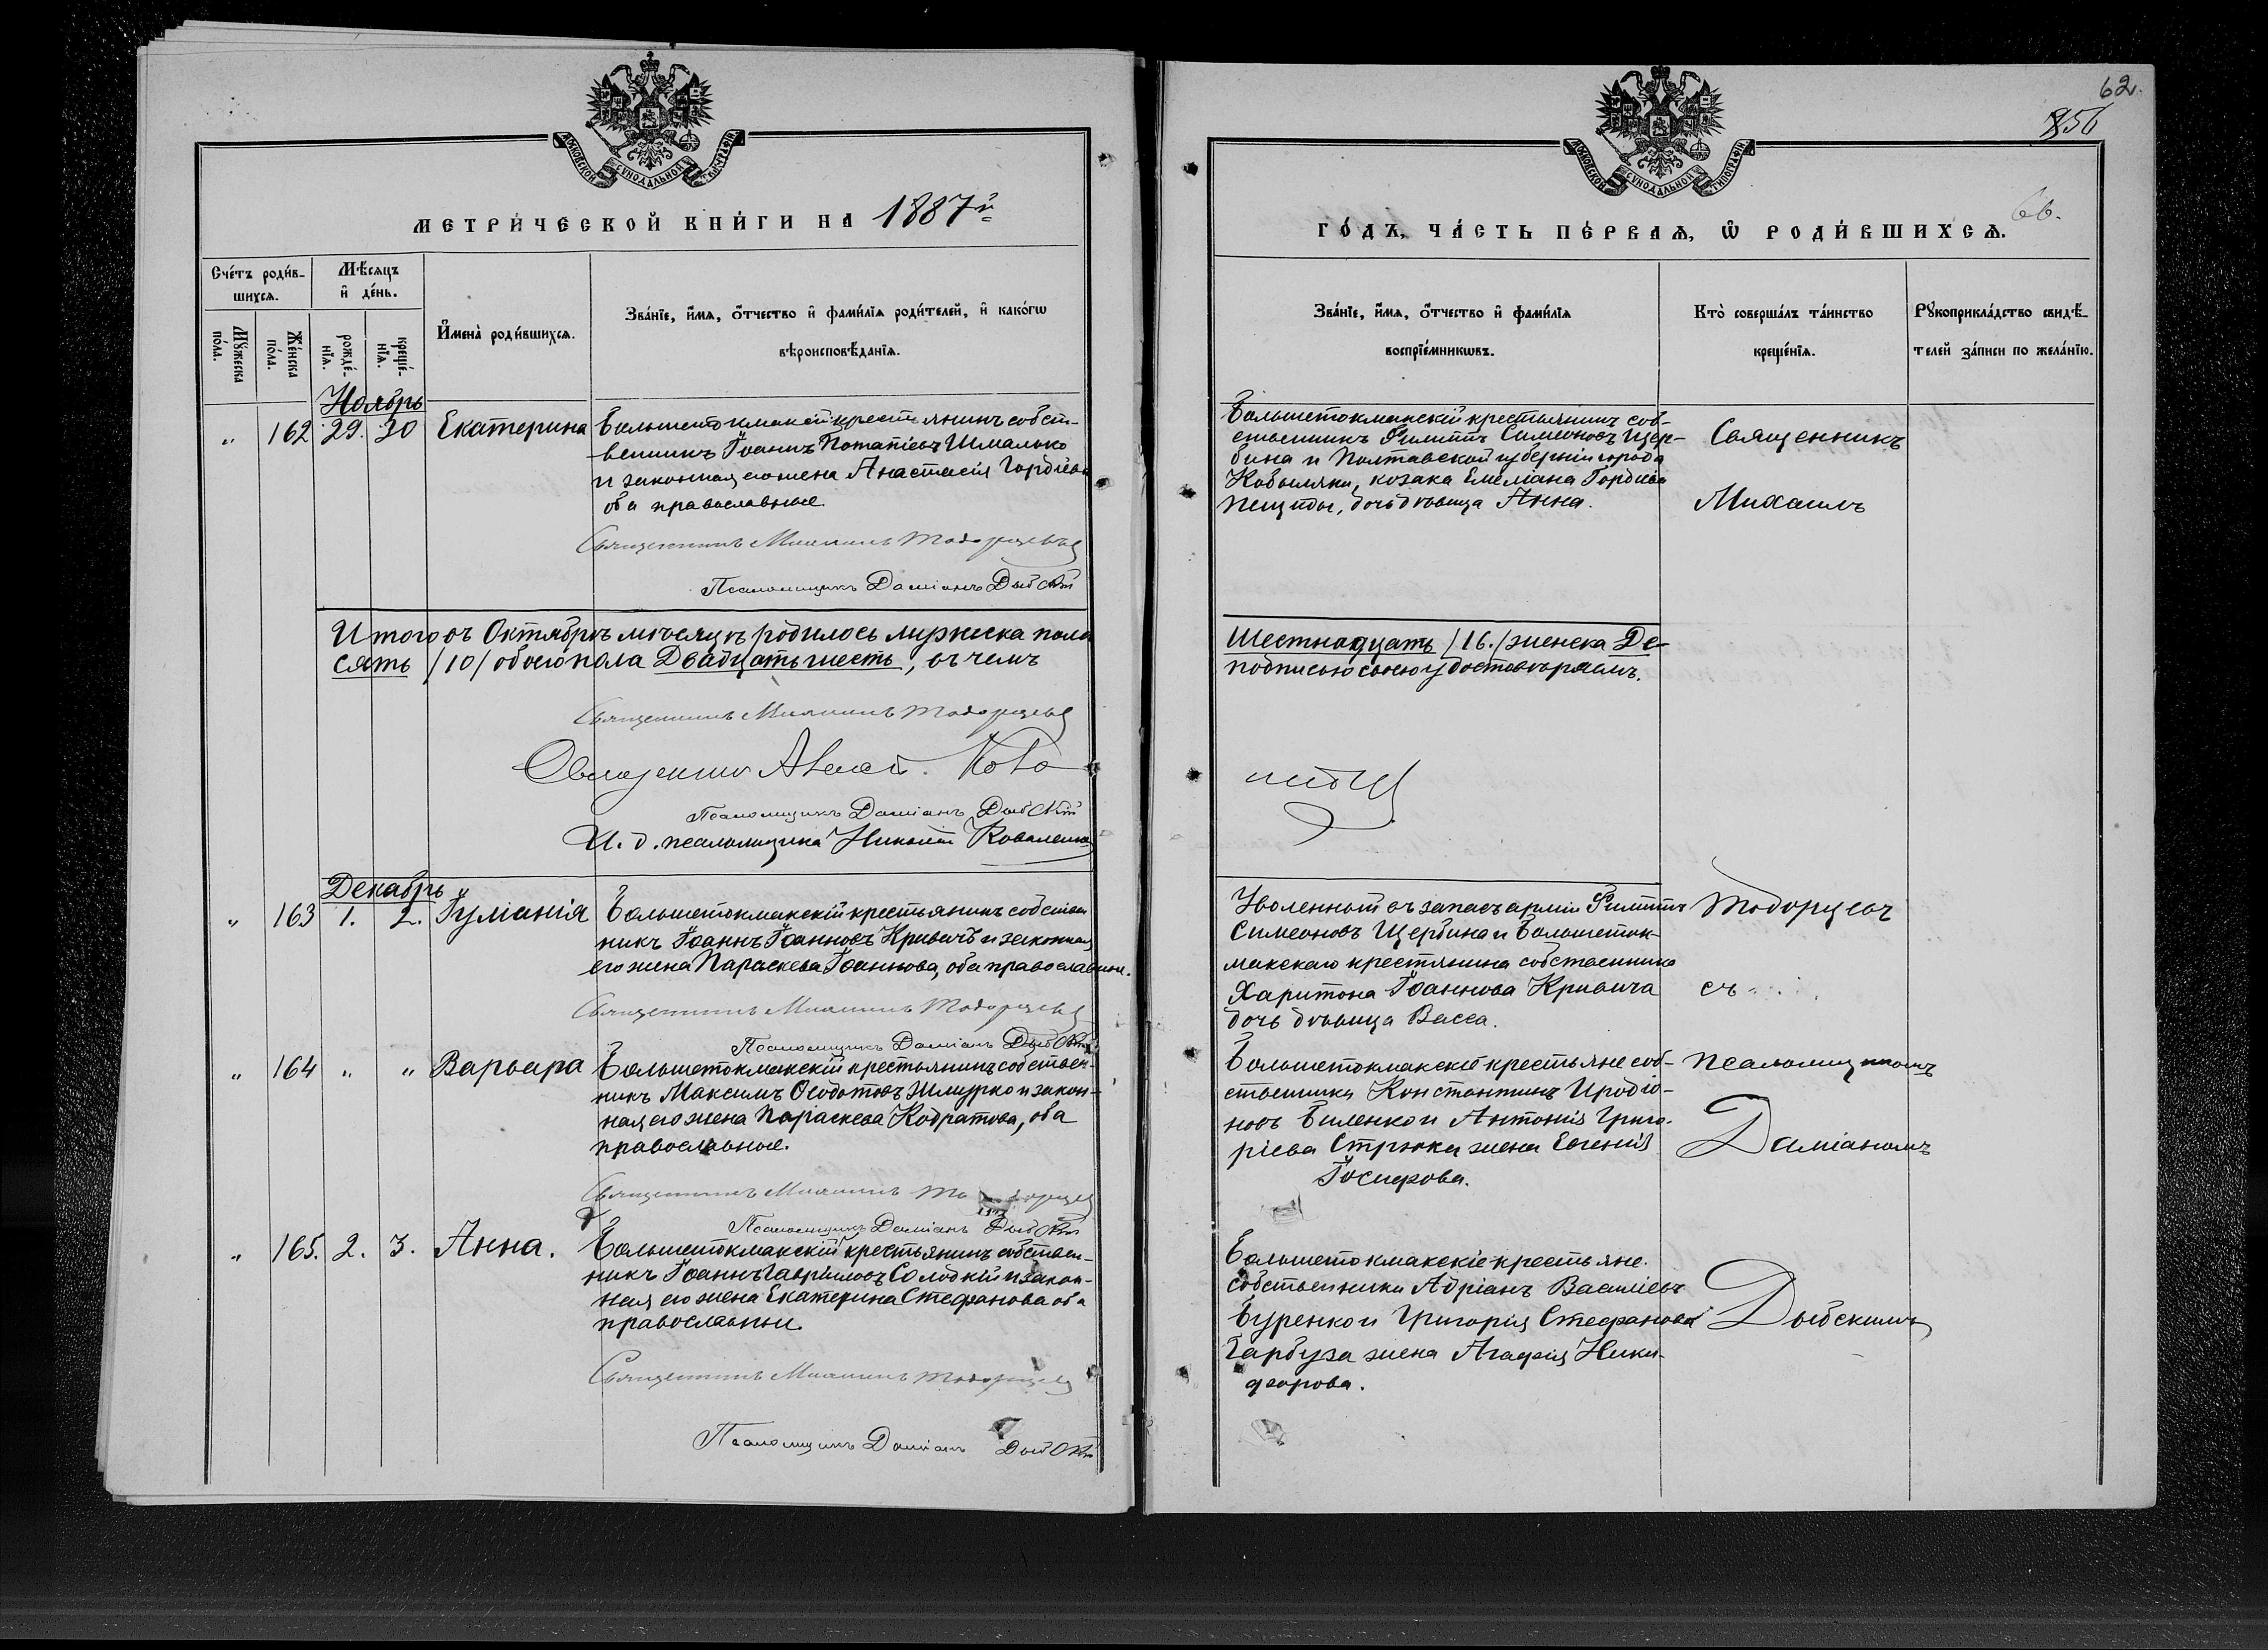 62.
856
66.
МОСКОВСКОЙ СѴНОДАЛЬНОЙ ТИПОГРАФІИ
МЕТРИ́ЧЕСКОЙ КНИ́ГИ НА 1887й
Сче́тъ роди́в-
шихсѧ.
Мѣ́сѧцъ
и҆ де́нь.
Мꙋ́жеска по́ла.
Же́нска по́ла.
рожде́-
нїѧ.
креще́-
нїѧ.
И҆мена̀ роди́вшихсѧ.
Зва́нїе, и҆́мѧ, ѻ҆́тчество и҆ фами́лїѧ роди́телей, и҆ како́гѡ
вѣроисповѣ́данїѧ.
Ноябрь
" 162 29. 30 Екатерина
Большетокмакскій крестьянинъ собст-
венникъ Іоаннъ Потапіевъ Шмалько
и законная его жена Анастасія Гордіева
оба православные
Священникъ Михаилъ Тодорцевъ
Псаломщикъ Даміанъ Дыбскій
Итого въ Октябрѣ мѣсяцѣ родилось мужеска пола
сять /10/ обоего пола Двадцать шесть, въ чемъ
Священникъ Михаилъ Тодорцевъ
Священникъ Алексѣй Кова
Псаломщикъ Даміанъ Дыбскій
И. д. псаломщика Николай Коваленко
Декабрь
" 163 1. 2. Іуліанія
Большетокмакскій крестьянинъ собствен
никъ Іоаннъ Іоанновъ Кривичъ и законная
его жена Параскева Іоаннова, оба православные.
Священникъ Михаилъ Тодорцевъ
Псаломщикъ Даміанъ Дыбскій
" 164 " " Варвара
Большетокмакскій крестьянинъ собствен-
никъ Максимъ Ѳеодотовъ Шмурко и закон-
ная его жена Параскева Кодратова, оба
православные.
Священникъ Михаилъ Тодорцевъ
Псаломщикъ Даміанъ Дыбскій
" 165. 2. 3. Анна.
Большетокмакскій крестьянинъ собствен-
никъ Іоаннъ Гавріиловъ Солодкій и закон-
ная его жена Екатерина Стефанова оба
православные
Священникъ Михаилъ Тодорцевъ
Псаломщикъ Даміанъ Дыбскій
МОСКОВСКОЙ СѴНОДАЛЬНОЙ ТИПОГРАФІИ
ГО́ДЪ, ЧА́СТЬ ПЕ́РВАѦ, Ѡ҆ РОДИ́ВШИХСѦ.
Зва́нїе, и҆́мѧ, ѻ҆́тчество и҆ фами́лїѧ
воспрїе́мникѡвъ.
Кто̀ соверша́лъ та́инство
креще́нїѧ.
Рꙋкоприкла́дство свидѣ́-
телей за́писи по жела́нїю.
Большетокмакскій крестьянинъ соб-
ственникъ Филиппъ Симеоновъ Щер-
бина и Полтавской губерніи города
Кобыляки, козака Емеліана Гордіева
дочь дѣвица Анна.
Священникъ
Михаилъ
Шестнадцать /16./ женска Де-
подписью своею удостовѣряемъ.
Уволенный въ запасъ арміи Филиппъ
Симеоновъ Щербина и Большеток-
макскаго крестьянина собственника
Харитона Іоаннова Кривича
дочь дѣвица Васса.
Тодорцевъ
съ
Большетокмакскіе крестьяне соб-
ственники Константинъ Иродіо-
новъ Биленко и Антонія Григо-
ріева Стрюка жена Евгенія
Іосифова.
псаломщикомъ
Даміаномъ
Большетокмакскіе крестьяне
собственники Адріанъ Василіевъ
Буренко и Григорія Стефанова
Гарбуза жена Агафія Ники-
форова.
Дыбскимъ